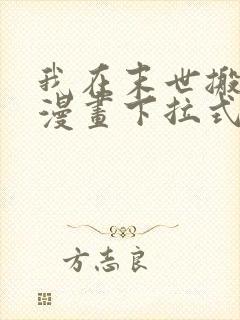 我在末世搬
漫畫下拉式
方志良